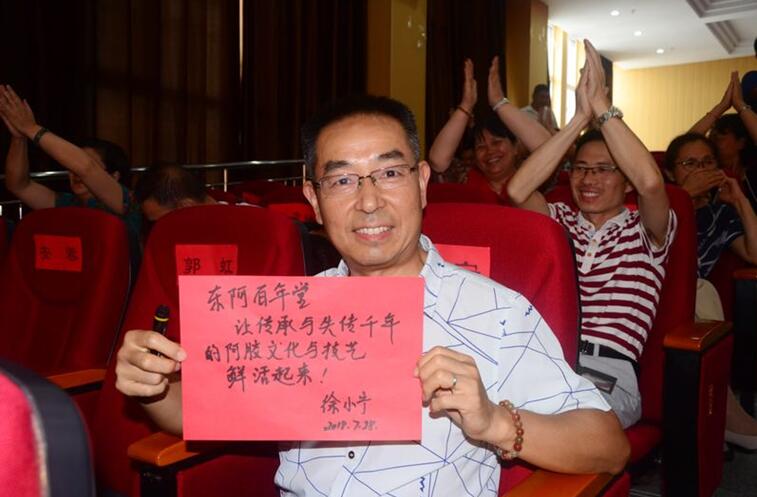 郭 虹
东阿百年堂
让传承与失传千年
的阿胶文化与技艺
鲜活起来！
徐小
2018.7.28.